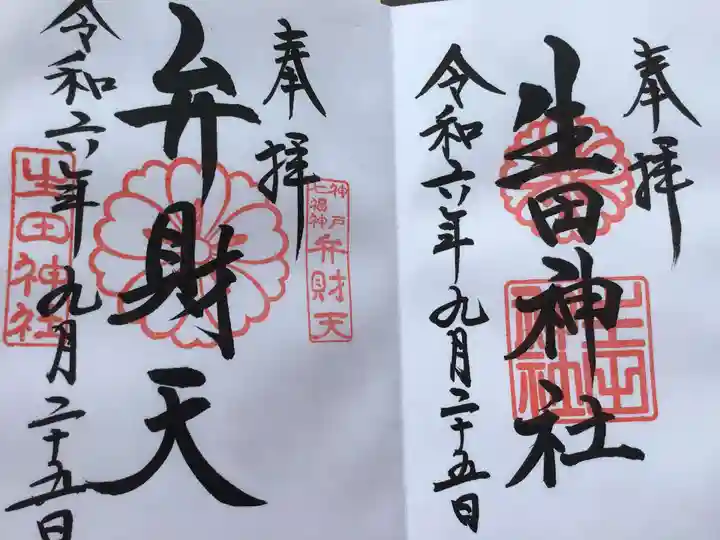 奉拝
生田神社
令和六年九月二十五日
生田神社
奉拝
神戸
七福神
弁財天
弁財天
令和六年九月二十五日
生田神社